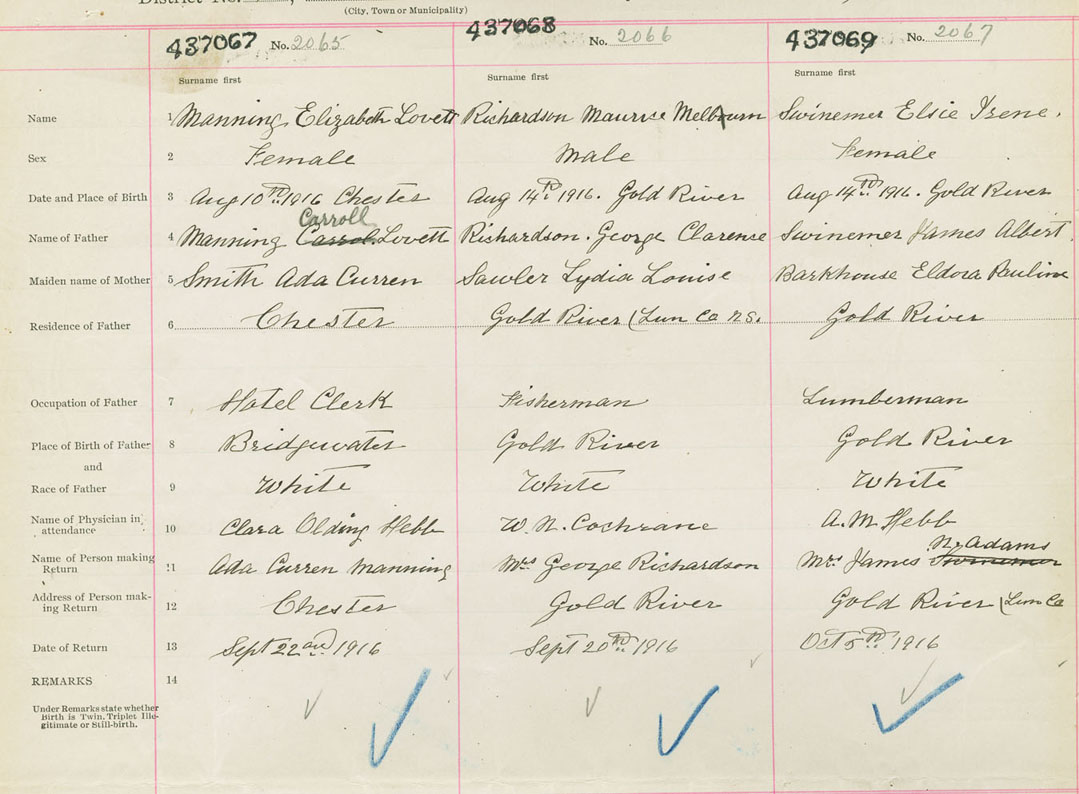 District No. ,
(City, Town or Municipality)
437067 No. 2065 437068 No. 2066 437069 No. 2067
Surname first Surname first Surname first
Name 1 Manning Elizabeth Lovett Richardson Maurice Melbourn Swinemer Elsie Irene.
Sex 2 Female Male Female
Date and Place of Birth 3 Aug 10th 1916 Chester Aug 14th 1916. Gold River Aug 14th 1916. Gold River
Carroll
Name of Father 4 Manning Carrol Lovett Richardson. George Clarence Swinemer James Albert
Maiden name of Mother 5 Smith Ada Curren Sawler Lydia Louise Barkhouse Eldora Pauline
Residence of Father 6 Chester Gold River (Lun Co N.S. Gold River
Occupation of Father 7 Hotel Clerk Fisherman Lumberman
Place of Birth of Father 8 Bridgewater Gold River Gold River
and
Race of Father 9 White White White
Name of Physician in attendance 10 Clara Olding Hebb W. N. Cochrane A. M. Hebb
N. Adams
Name of Person making Return 11 Ada Curren Manning Mrs George Richardson Mrs James Swinemer
Address of Person making Return 12 Chester Gold River Gold River (Lun Co
Date of Return 13 Sept 22nd 1916 Sept 20th 1916 Oct 5th 1916
REMARKS 14
Under Remarks state whether
Birth is Twin, Triplet Ille-
gitimate or Still-birth.